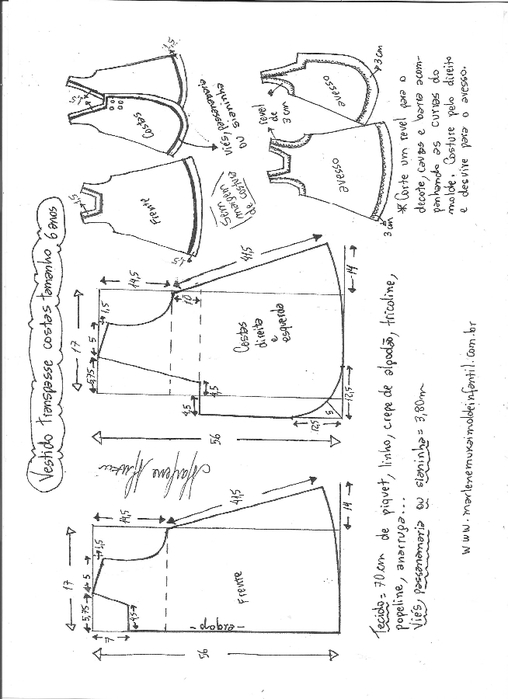 Vestido Transpasse costas tamanho 6 anos
56
7
5,75
5
1,5
4,5
17
14,5
41,5
14
Frente
dobra
Marlene Mukai
56
17
5,75
5
1,5
14,5
10
41,5
4,5
4,5
12,5
5
12,5
14
Costas
direita
e
esquerda
1,5
1,5
Frente
Sem
margem
de costura
1,5
1,5
Costas
Viés passanamaria
ou sianinha
revel
de
3 cm
avesso
3 cm
avesso
3 cm
*Corte um revel para o
decote, cavas e barra acom-
panhando as curvas do
molde. Costure pelo direito
e desvire para o avesso.
Tecido = 70 cm de piquet, linho, crepe de algodão, tricoline,
popeline, anarruga...
Viés, passanamaria ou sianinha = 3,80m
www.marlenemukaimoldeinfantil.com.br